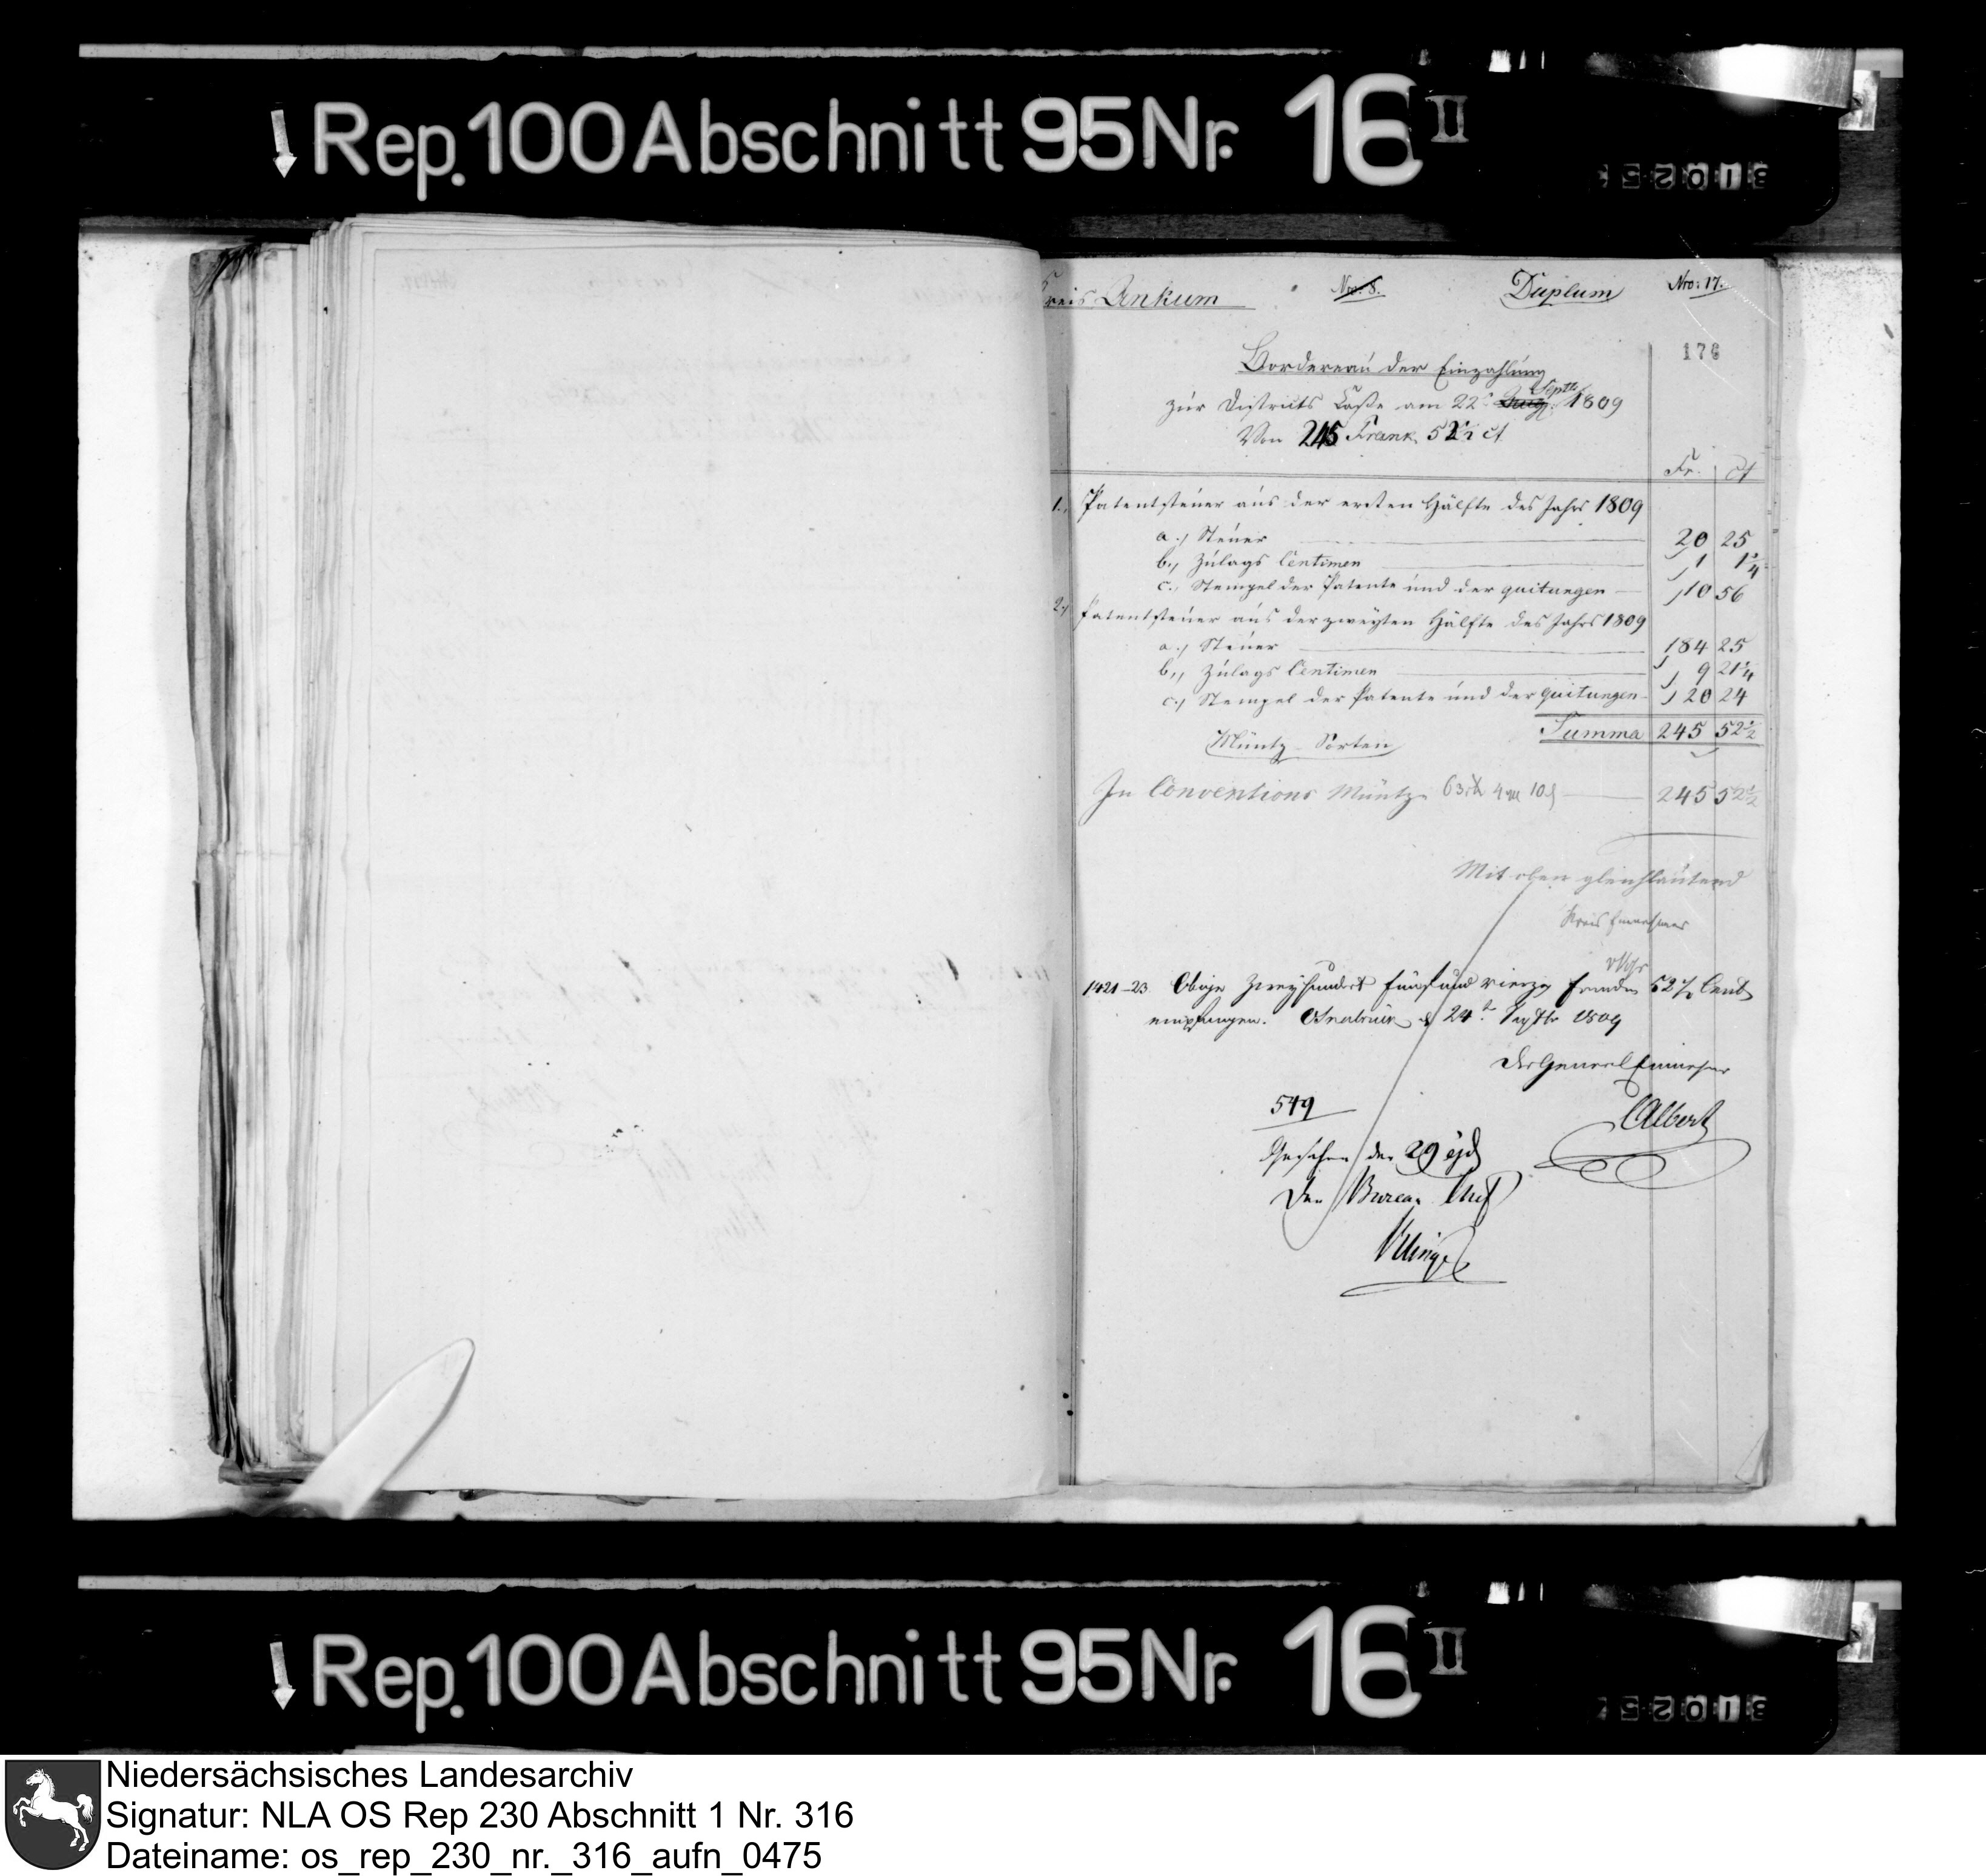 Rep. 100 Abschnitt 95 Nr. 16 II
Kreis Ankum Nro: 8. Duplum Nro: 17.
176
Bordereau der Einzahlung
zur Districts Casse am 22t Aug: Septbr 1809
Von 245 Frank 52½ ct
Fr. ct
1., Patentsteuer aus der ersten Hälfte des Jahrs 1809
a., Steuer 20 25
b., Zulags Centimen 1 1¼
c., Stempel der Patente und der quitungen 10 56
2., Patentsteuer aus der zweyten Hälfte des Jahrs 1809
a., Steuer 184 25
b., Zulags Centimen 9 21¼
c., Stempel der Patente und der quitungen 20 24
Summa 245 52½
Müntz Sorten
In Conventions Müntz 63 rt 4 ggl 10 d 245 52½
Mit oben gleichlautend
Kreis Einnehmer
1421-23 Obige Zweyhundert fünf und vierzig Franken 52½ Cent
empfangen. Osnabrück d 24t Septbr 1809
Der General Einnehmer
CAlbert
549
Gesehen den 29 ejd
Der Bureau Chef
Rep. 100 Abschnitt 95 Nr. 16 II
Niedersächsisches Landesarchiv
Signatur: NLA OS Rep 230 Abschnitt 1 Nr. 316
Dateiname: os_rep_230_nr._316_aufn_0475